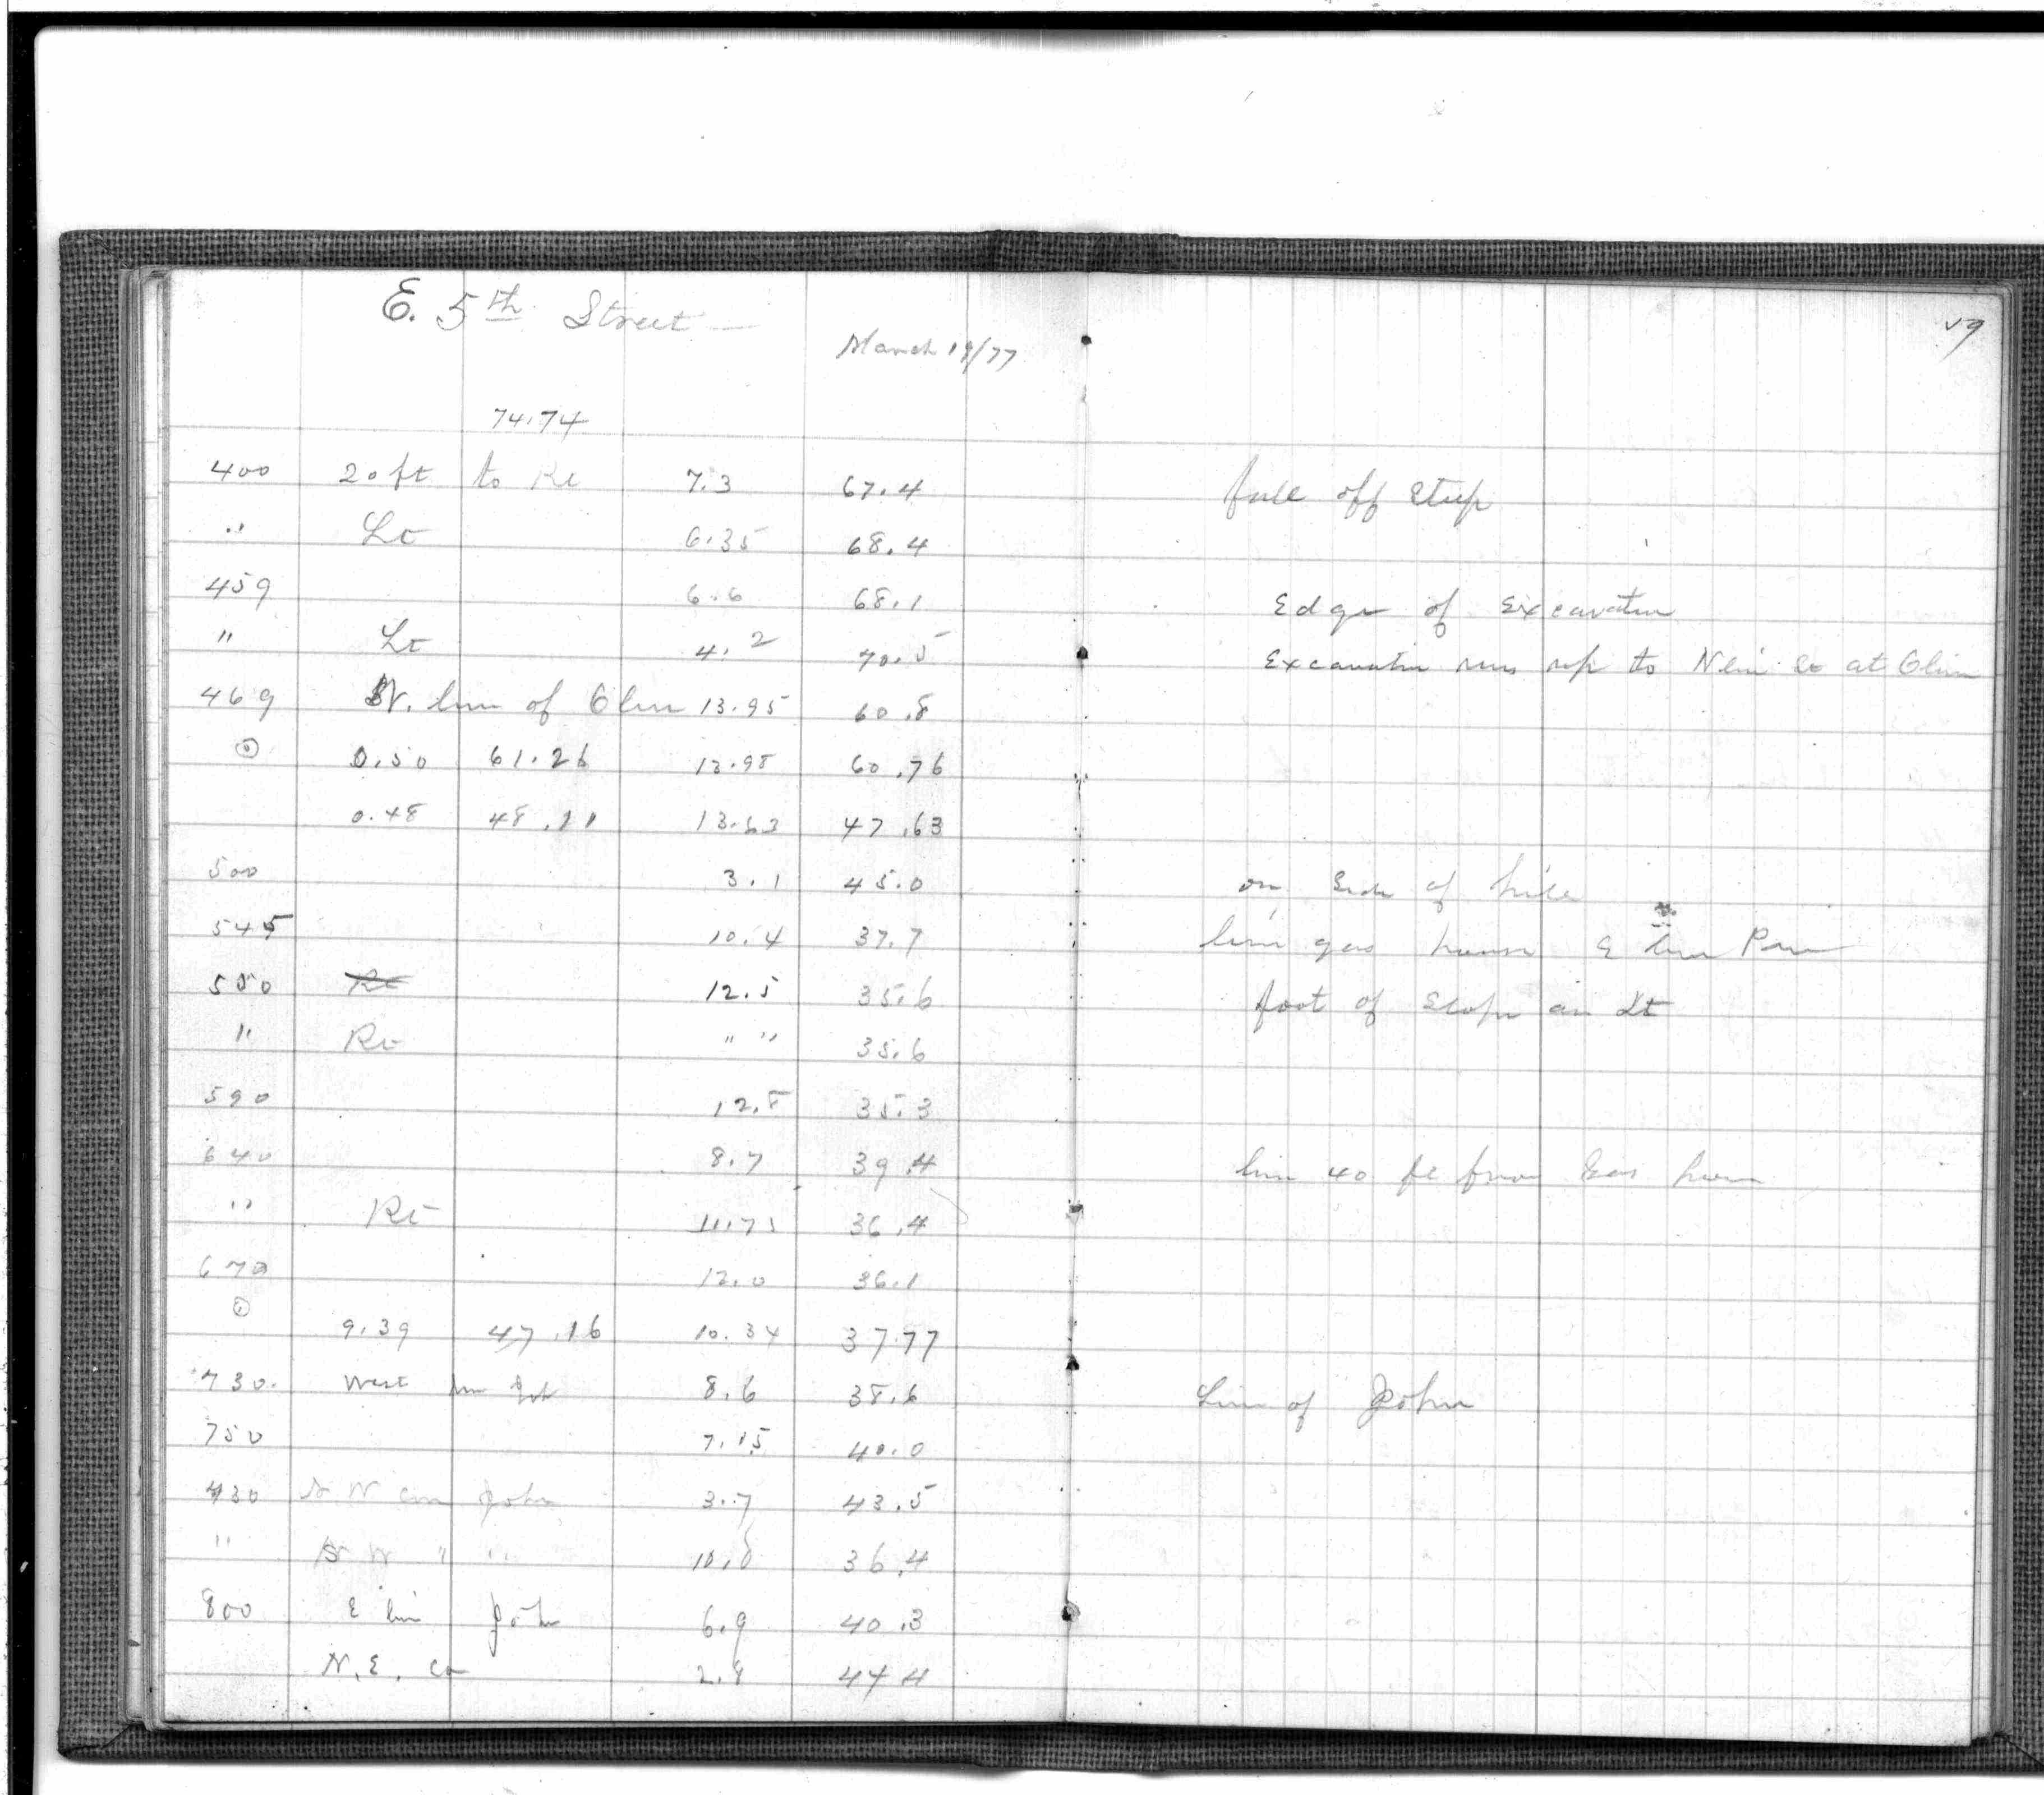 E. 5th Street
March 19/77
59
74.74
400 20 ft to Rt 7.3 67.4 fall off steep
" Lt 6.35 68.4
459 6.6 68.1 Edge of Excavation
" Lt 4.2 70.5 Excavation runs up to N line St at Olive
469 N. line of Olive 13.95 60.8
⊙ 0.50 61.26 13.98 60.76
0.48 48.11 13.63 47.63
500 3.1 45.0 on side of hill
545 10.4 37.7 line gas house E line
550 12.5 35.6 foot of slope on Lt
" Rt " " 35.6
590 12.8 35.3
640 8.7 39.4 line 40 ft from Gas house
" Rt 11.75 36.4
670 12.0 36.1
⊙
9.39 47.16 10.34 37.77
730. West line John 8.6 38.6 Line of John
750 7.15 40.0
730 N W cor John 3.7 43.5
" S W " " 10.8 36.4
800 E line John 6.9 40.3
N. E. cor 2.8 44.4